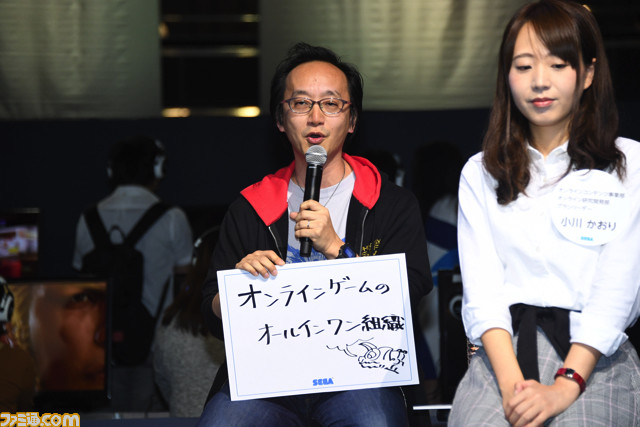 オンラインゲームの
オールインワン組織
SEGA
小川 かおり
SEGA
ファミ通.com